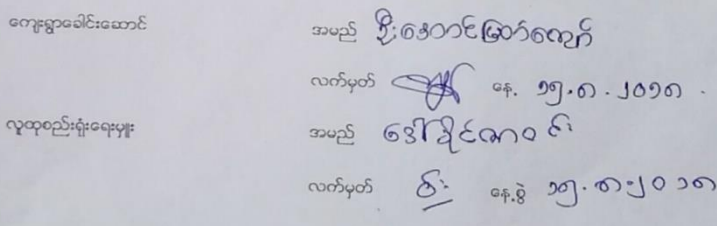 ကျေးရွာခေါင်းဆောင် အမည် ဦးအောင်ဇော်ကျော်
လက်မှတ် နေ့ ၁၅.၈.၂၀၁၈.
လူထုစည်းရုံးရေးမှူး အမည် ဒေါ်ခိုင်ဇာဝင်း
လက်မှတ် ဝင်း နေ့စွဲ ၁၅.၈.၂၀၁၈